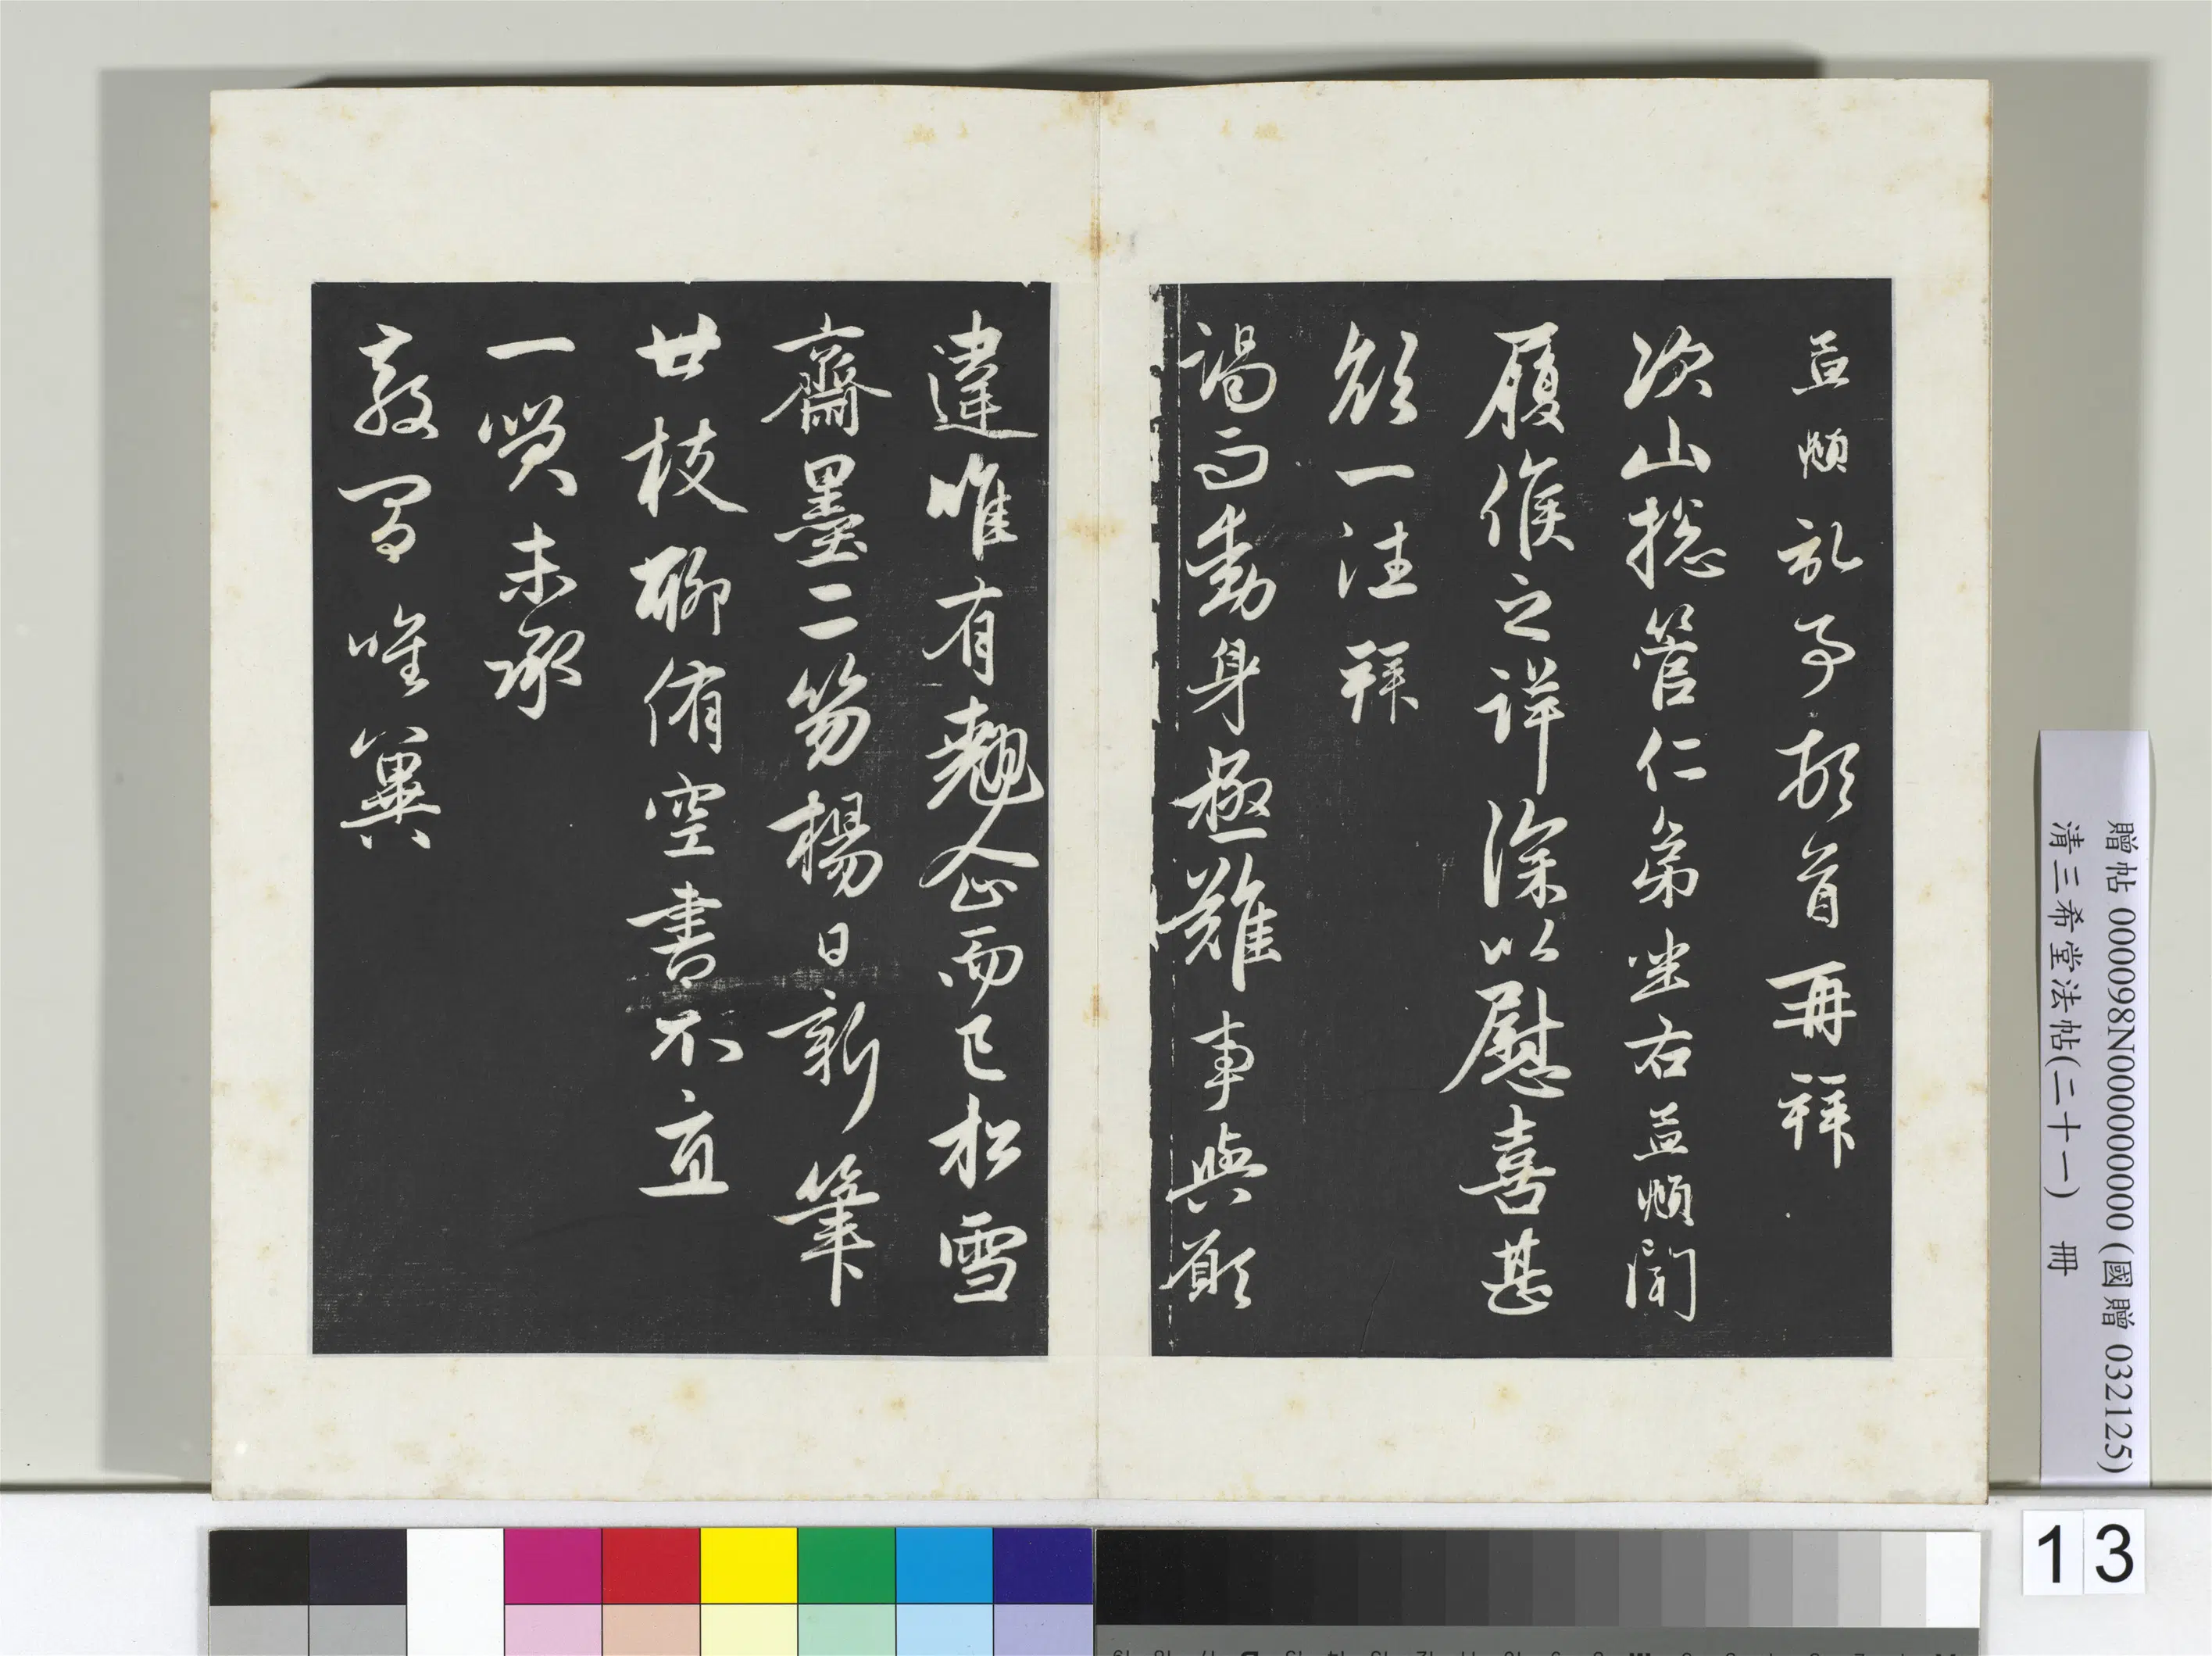 孟頫記事頓首再拜
次山總管仁弟坐右孟頫聞
履候之詳深以慰喜甚
欲一往拜
謁而動身極難事與願
違唯有翹企而已松雪
齋墨二笏楊日新筆
廿枝聊侑空書不直
一笑未承
教間唯冀
贈帖 000098N000000000 (國贈 032125)
清三希堂法帖(二十一) 冊
13